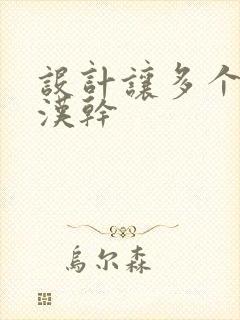 設計讓多个
漢幹
烏尔森